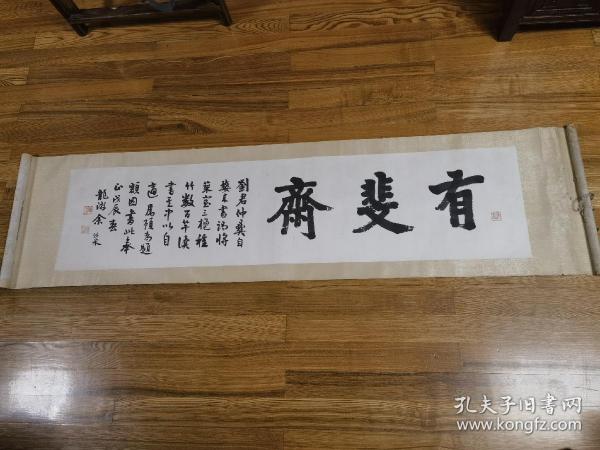 有斐齋
劉君仲龔自
書
三楹種
竹數百竿讀
書其中以自
適屬預為題
額因書此奉
正戊辰春
龍游余
孔夫子旧书网
www.kongfz.com